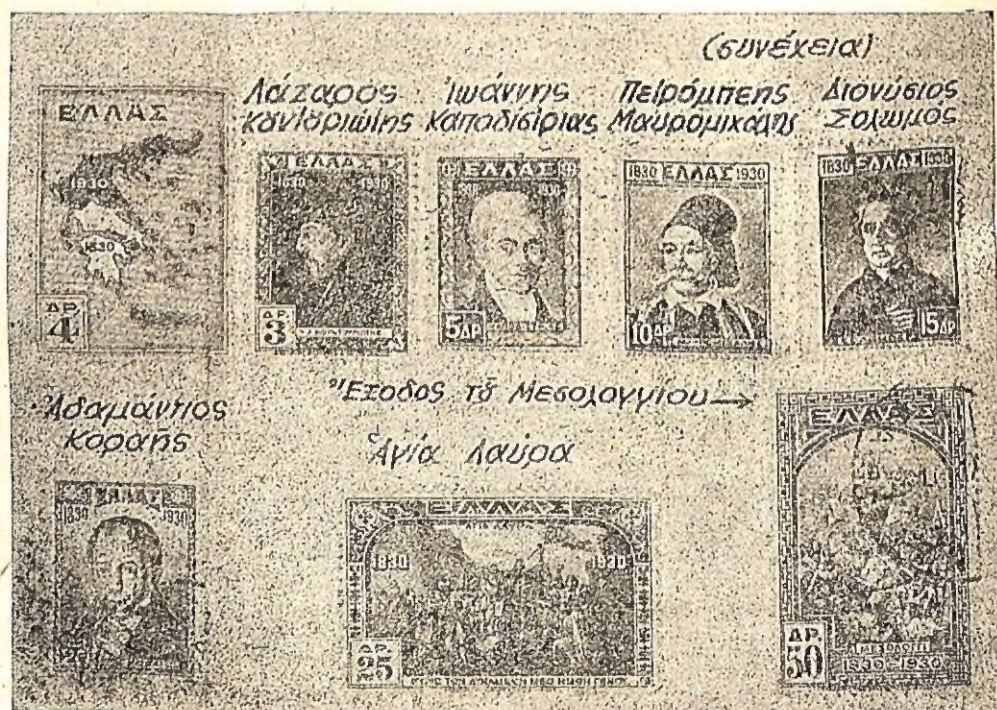 (συνέχεια)
Λάζαρος
Κουντουριώτης
Ἰωάννης
Καποδίστριας
Πετρόμπεης
Μαυρομιχάλης
Διονύσιος
Σολωμός
ΕΛΛΑΣ
1930
1830
ΔΡ.
4
ΕΛΛΑΣ
1830 1930
ΔΡ.
3
ΕΛΛΑΣ
1930
5ΔΡ
1830 ΕΛΛΑΣ 1930
10ΔΡ
1830 ΕΛΛΑΣ 1930
15ΔΡ
Ἔξοδος τȣ͂ Μεσολογγίου→
Ἀδαμάντιος
Κοραῆς
Ἁγία Λαύρα
ΕΛΛΑΣ
1830 1930
ΕΛΛΑΣ
ΑΓΙΑ ΛΑΥΡΑ
1830 1930
ΔΡ.
25
ΕΛΛΑΣ
ΔΡ.
50
1830-1930